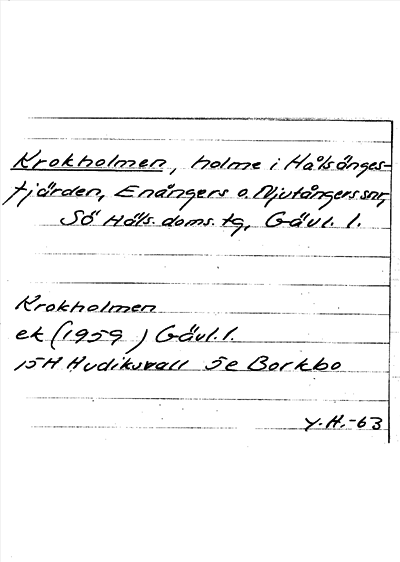 Krokholmen, holme i Hålsänges-
fjärden, Enångers o. Njutångers snr,
Sö Häls. doms. tg, Gävl. l.
Krokholmen
ek (1959) Gävl. l.
15H Hudiksvall 5e Borkbo
Y.H.-63